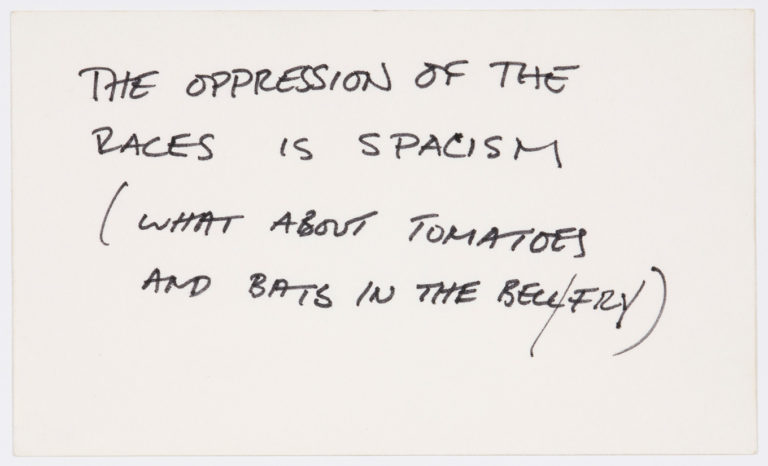 THE OPPRESSION OF THE
RACES IS SPACISM
(WHAT ABOUT TOMATOES
AND BATS IN THE BELL/FRY)